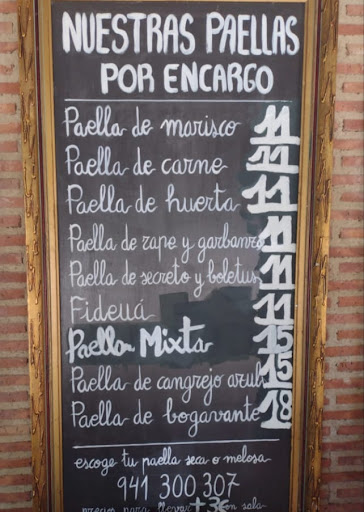 NUESTRAS PAELLAS
POR ENCARGO
Paella de marisco 11
Paella de carne 11
Paella de huerta 11
Paella de rape y garbanzo 11
Paella de secreto y boletus 11
Fideuá 11
Paella Mixta 15
Paella de cangrejo azul 15
Paella de bogavante 18
escoge tu paella seca o melosa
941 300 307
precios para llevar +3€ en sala